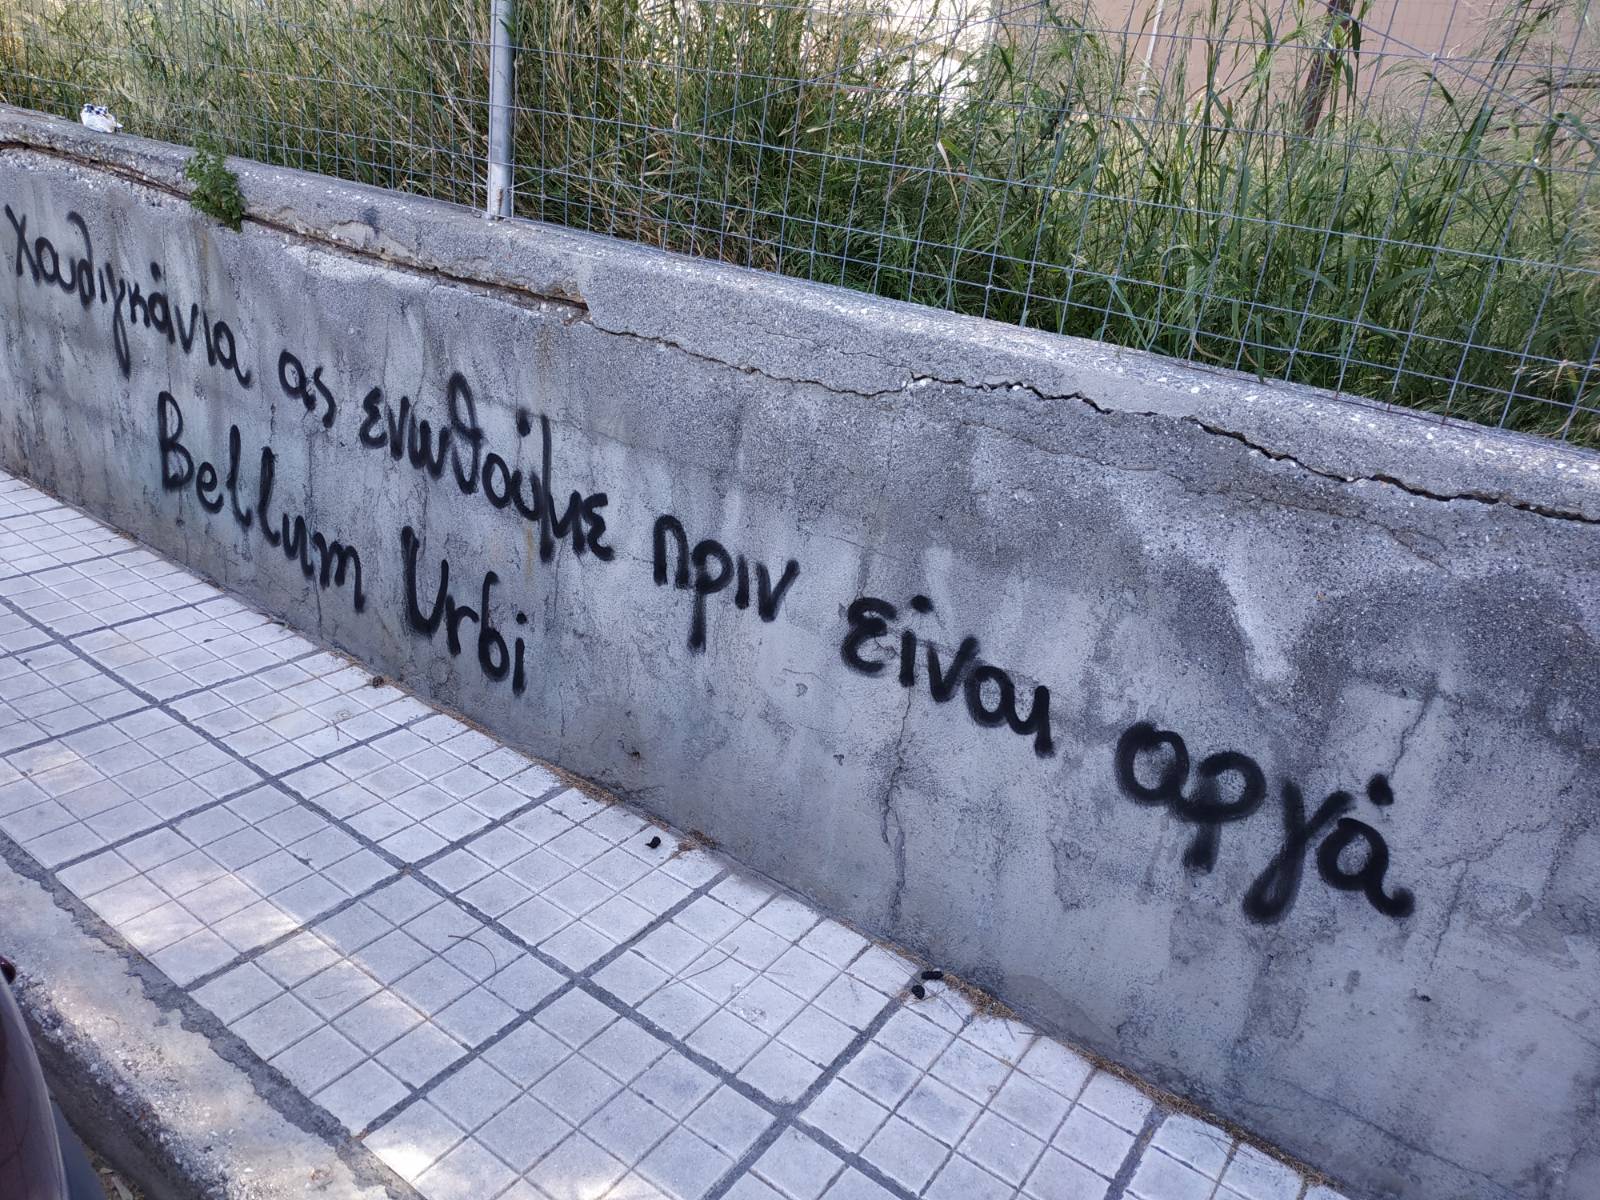 Χουλιγκάνια ας ενωθούμε πριν είναι αργά
Bellum Urbi